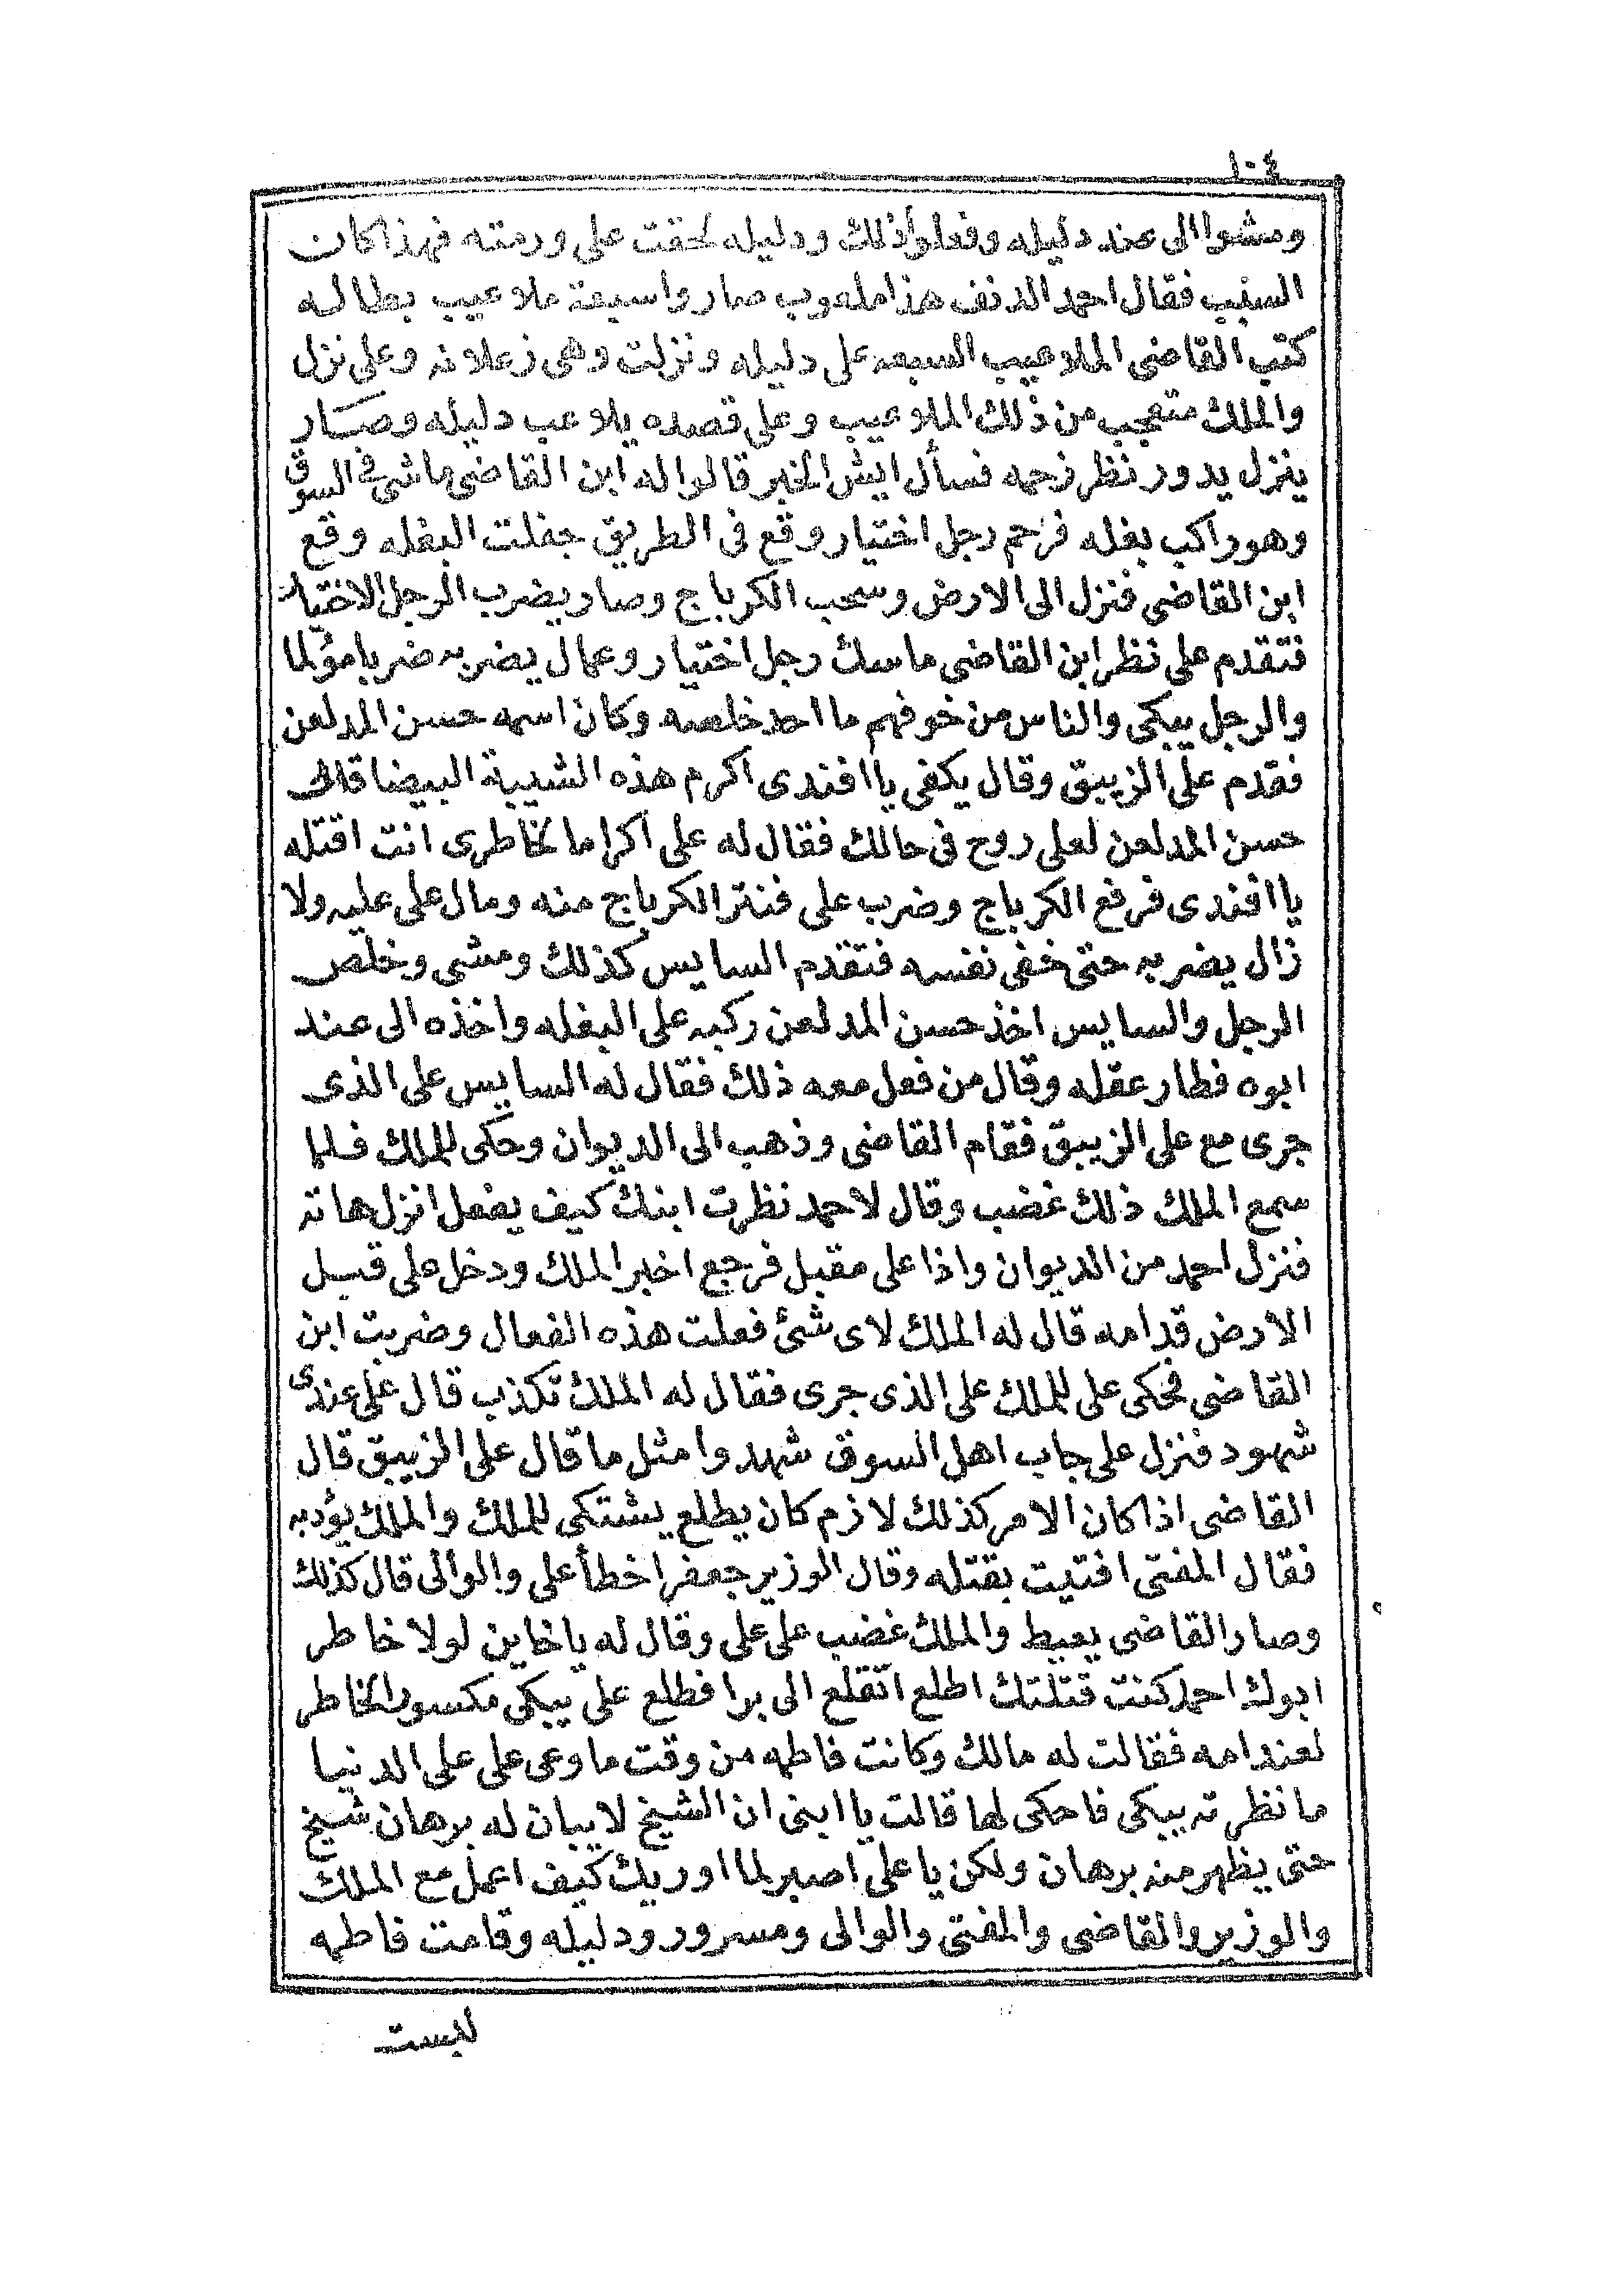 ١٠٤
ومشوا الى عند دليله وفعلوا ذلك ودليله لحقت على ورمته فهذا كان
السبب فقال احمد الدنف هذا ملعوب صاروا سبعة ملاعيب بطاله
كتب القاضى الملاعيب السبعه على دليله ونزلت وهى زعلانه وعلى نزل
والملك متعجب من ذلك الملاعيب وعلى قصده يلاعب دليله وصار
ينزل يدور نظر زحمه فسأل ايش الخبر قالوا له ابن القاضى ماشى فى السوق
وهو راكب بغله فزحم رجل اختيار وقع فى الطريق جفلت البغله وقع
ابن القاضى فنزل الى الارض وسحب الكرباج وصار يضرب الرجل الاختيار
فتقدم على نظر ابن القاضى ماسك رجل اختيار وعمال يضربه ضربا مؤلما
والرجل يبكى والناس من خوفهم ما احد خلصه وكان اسمه حسن المدلعن
فقدم على الزيبق وقال يكفى يا افندى اكرم هذه الشيبة البيضا قال
حسن المدلعن لعلى روح فى حالك فقال له على اكراما لخاطرى انت اقتله
يا افندى فرفع الكرباج وضرب على فنتر الكرباج منه ومال على عليه ولا
زال يضربه حتى خفى نفسه فتقدم السايس كذلك ومشى وخلص
الرجل والسايس اخذ حسن المدلعن ركبه على البغله واخذه الى عند
ابوه فطار عقله وقال من فعل معه ذلك فقال له السايس على الذى
جرى مع على الزيبق فقام القاضى وذهب الى الديوان وحكى للملك فلما
سمع الملك ذلك غضب وقال لاحمد نظرت ابنك كيف يفعل انزل هاته
فنزل احمد من الديوان واذا على مقبل فرجع اخبر الملك ودخل على قبل
الارض قدامه قال له الملك لاى شئ فعلت هذه الفعال وضربت ابن
القاضى فحكى على للملك على الذى جرى فقال له الملك تكذب قال على عندى
شهود فنزل على جاب اهل السوق شهدوا مثل ما قال على الزيبق قال
القاضى اذا كان الامر كذلك لازم كان يطلع يشتكى للملك والملك يؤدبه
فقال المفتى افتيت بقتله وقال الوزير جعفر اخطأ على والوالى قال كذلك
وصار القاضى يعيط والملك غضب على على وقال له يا خاين لولا خاطر
ابوك احمد كنت قتلتك اطلع اتقلع الى برا فطلع على يبكى مكسور الخاطر
لعند امه فقالت له مالك وكانت فاطمه من وقت ما وعى على على الدنيا
ما نظرته يبكى فاحكى لها قالت يا ابنى ان الشيخ لا يبان له برهان شيخ
حتى يظهر منه برهان ولكن يا على اصبر لما اوريك كيف اعمل مع الملك
والوزير والقاضى والمفتى والوالى ومسرور ودليله وقامت فاطمه
لبست